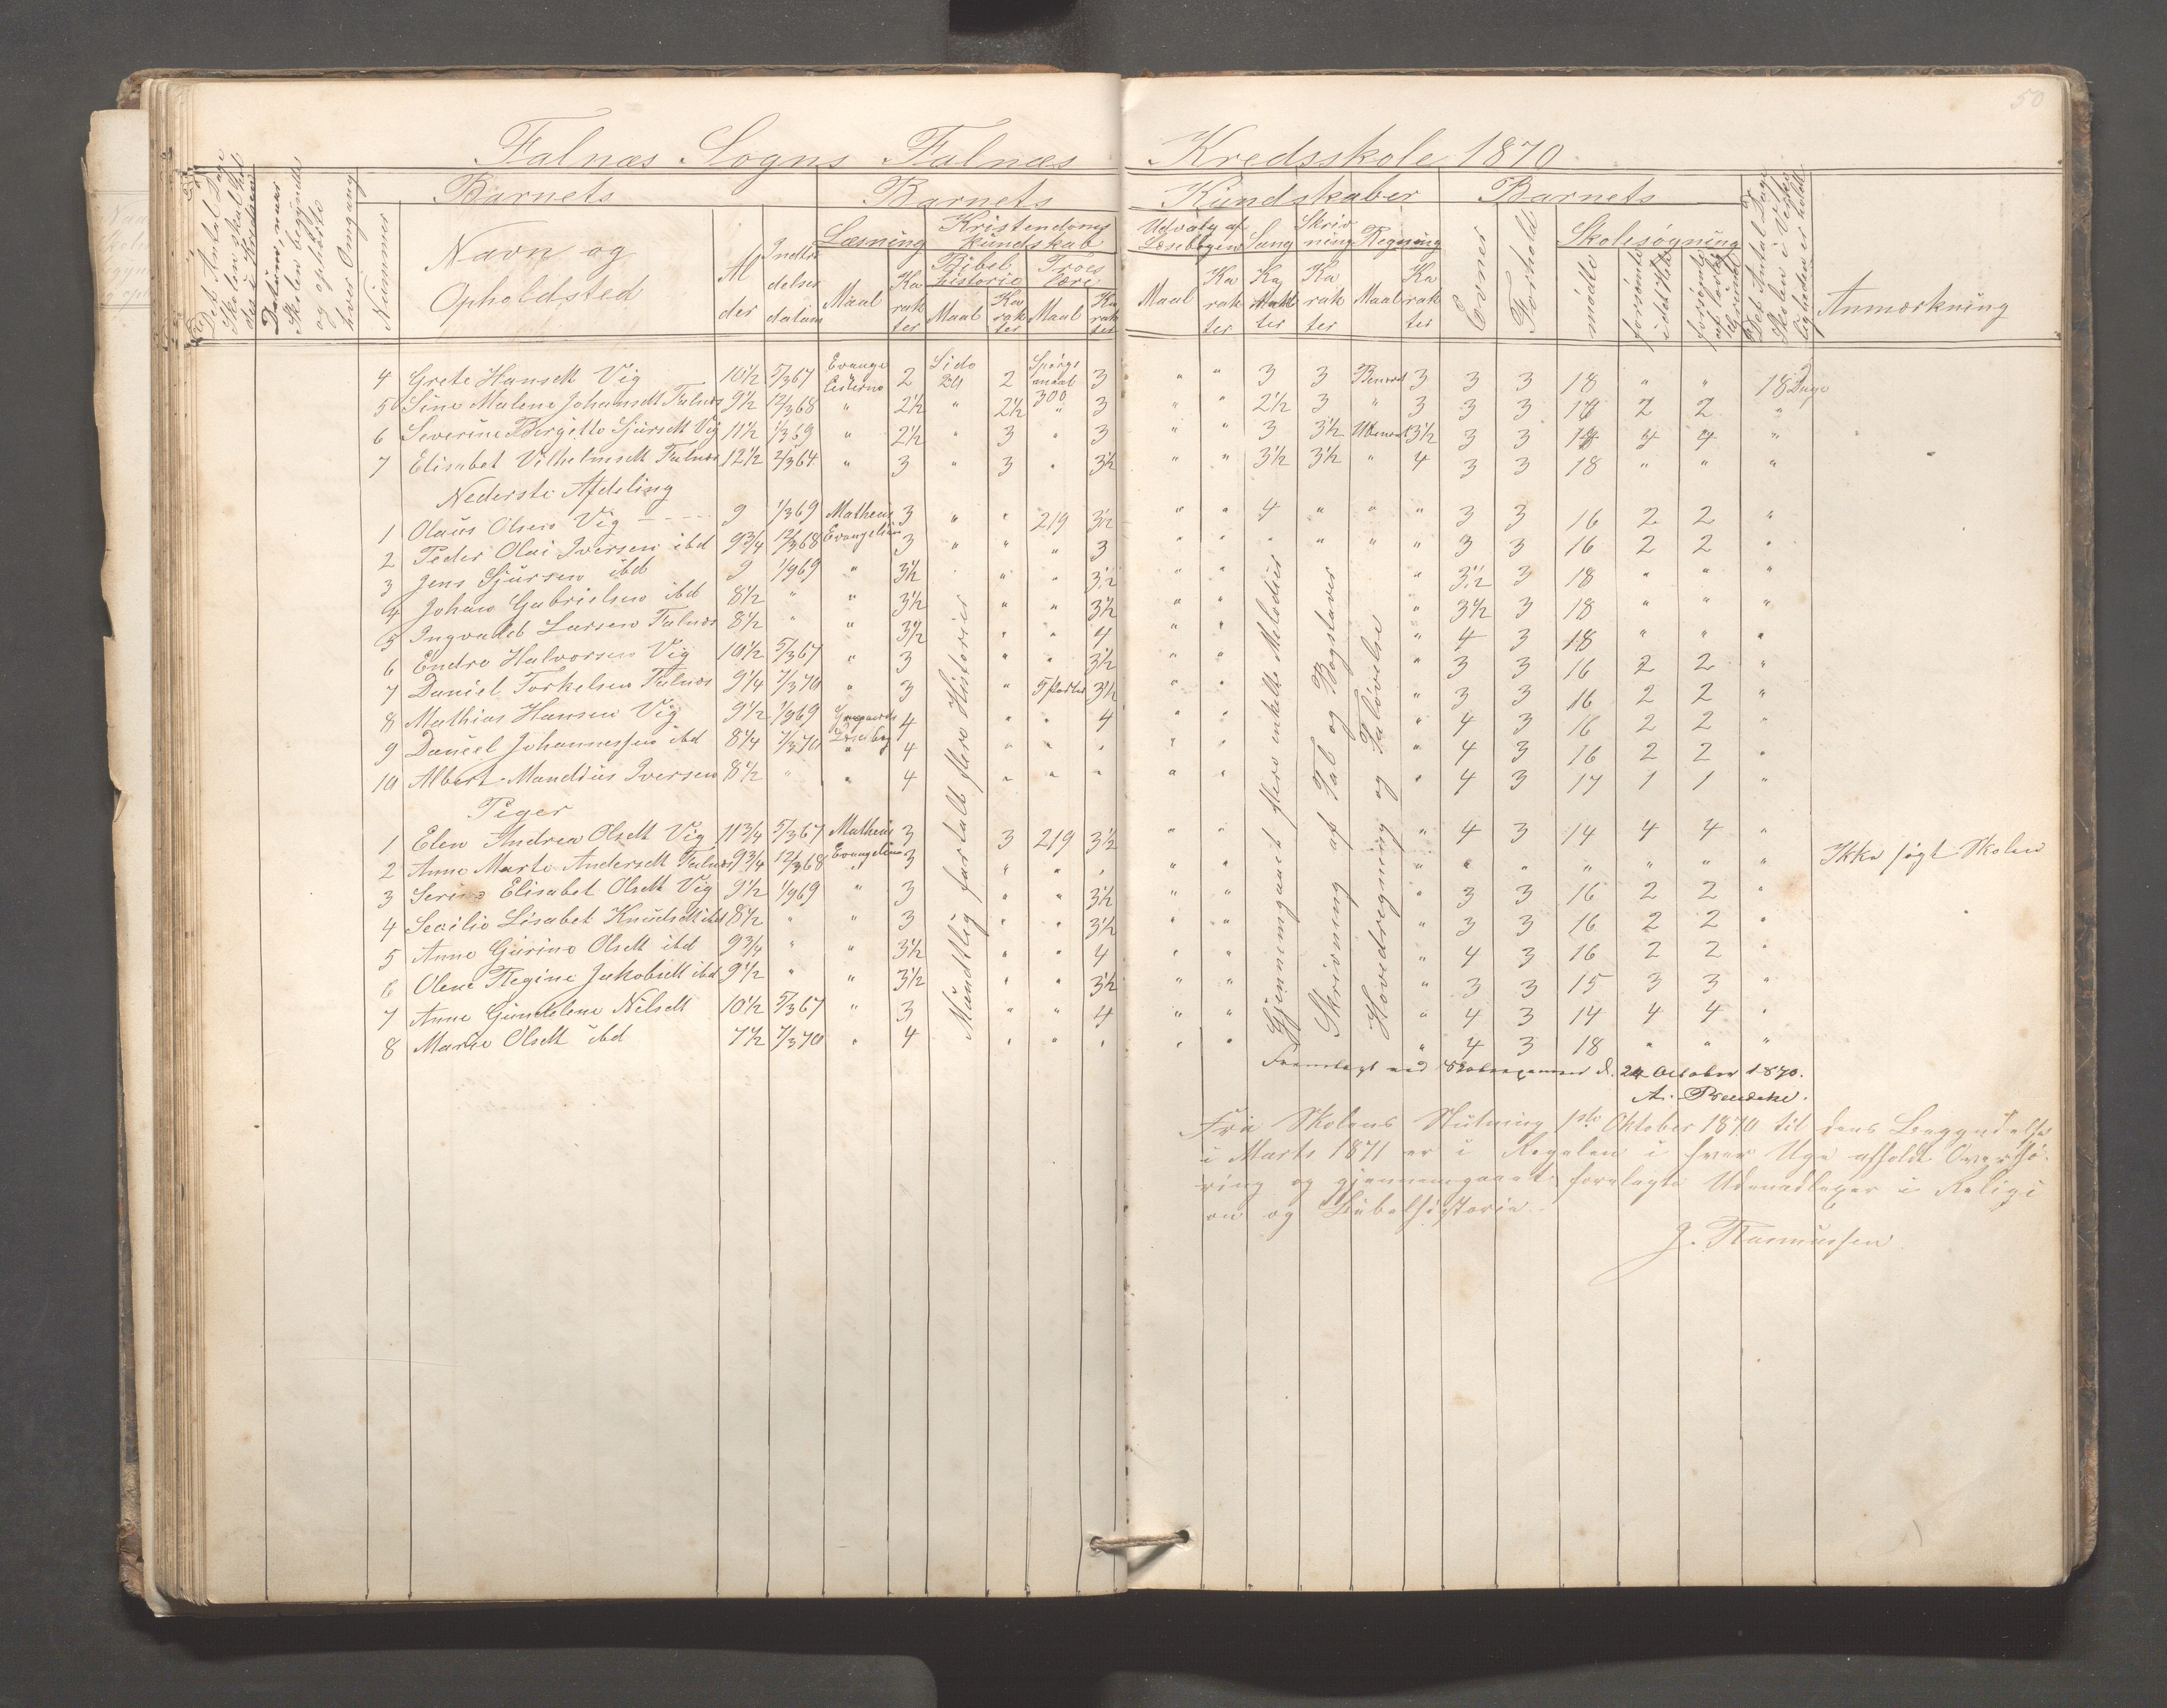 50
Falnæs Sogns Falnæs Kredsskole 1870
Barnets Barnets Kundskaber Barnets
Det Antal Dage Skolen skal holdes i Kredsen
Datum, naar Skolen begyndte og ophørte hver Omgang
Nummer
Navn og Opholdsted
Alder
Indtrædelses datum
Læsning
Maal Karakter
Kristendoms kundskab
Bibelhistorie
Maal Karakter
Troeslære
Maal Karakter
Udvalg af Læsebogen
Maal Karakter
Sang
Karakter
Skrivning
Karakter
Regning
Maal Karakter
Evner
Forhold
Skolesøgning
mødte
forsømte i det Hele
forsømte af lovlig Grund
Det Antal Dage Skolen i Virkeligheden er holdt
Anmærkning
4 Grete Hansdt Vig 10½ 5/3 67 Evange 2 Sido 2 Spørgsmaal 300 3 " " 3 3 3 3 3 18 " " 18 Dage
5 Sine Malene Johansdt Falnæs 9½ 12/3 68 " 2½ " 2½ " 3 " " 2½ 3 " 3 3 3 2 2 "
6 Severine Bergette Sjursdt Vig 11½ 1/3 69 " 2½ " 3 " 3 " " 3 3½ 3½ 3 3 4 "
7 Elisabet Vilhelmsdt Falnæs 12½ 2/3 64 " 3 " 3 " 3½ " " 3½ 3½ " 4 3 3 18 " " "
Nederste Afdeling
1 Olaus Olsen Vig 9 1/3 69 Mathæus Evangelium 3 " " 219 3½ " " 4 " " " 3 3 16 2 2 "
2 Peder Olai Iversen ibd 9¾ 12/3 68 3 " " " 3 " " " " " " 3 3 16 2 2 "
3 Jens Sjursen ibd 9 1/9 69 " 3½ " " 3½ " " " 3½ 3 18 " " "
4 Johan Gabrielsen ibd 8½ " " 3½ " " 3½ " " " 3½ 3 18 " " "
5 Ingvald Larsen Falnæs 8½ " " 3½ " " 4 " " " 4 3 18 " " "
6 Endre Halvorsen Vig 10½ 5/3 67 " 3 " " 3½ " " " 3 3 16 2 2 "
7 Daniel Torkelsen Falnæs 9¼ 7/3 70 " 3 " 5 Parter 3½ " " " 3 3 16 2 2 "
8 Mathias Hansen Vig 9½ 1/9 69 4 " " 4 " " " 4 3 16 2 2 "
9 Daniel Johannessen ibd 8¼ 7/3 70 " 4 " " " " " " 4 3 16 2 2 "
10 Albert Mandius Iversen 8½ " " 4 " " " " " " 4 3 17 1 1 "
Piger
1 Elen Andrea Olsdt Vig 11¾ 5/3 67 Mathæus Evangelium 3 3 219 3½ " " " 4 3 14 4 4 "
2 Anne Marte Andersdt Falnæs 9¾ 12/3 68 " 3 " " " " " " " " " " " " Ikke søgt Skolen
3 Serine Elisabet Olsdt Vig 9½ 1/9 69 " 3 " " 3½ " " " 3 3 16 2 2 "
4 Secilie Lisabet Knudsdt ibd 8½ " " 3 " " 3½ " " " 3 3 16 2 2 "
5 Anne Gurine Olsdt ibd 9¾ " " 3½ " " 4 " " " 4 3 16 2 2 "
6 Olene Regine Jakobsdt ibd 9½ " " 3½ " " 3½ " " " 3 3 15 3 3 "
7 Anne Gundelene Nilsdt 10½ 5/3 67 " 3 " " 4 " " " 4 3 14 4 4 "
8 Marie Olsdt ibd 7½ 7/3 70 " 4 " " " " " " 4 3 18 " " "
Mundtlig fortalt flere Historier
Gjennemgaaet flere enkelte Melodier
Skrivning af Tal og Bogstaver
Hovedregning og Taløvelse
Fremlagt ved Skoleexamen d. 24 October 1870.
A.
Fra Skolens Slutning 1ste Oktober 1870 til dens Begyndelse
i Marts 1871 er i Regelen i hver Uge afholdt Overhø-
ring og gjennemgaaet forelagte Udenadlexer i Religi
on og Bibelhistorie.
J. Rasmussen